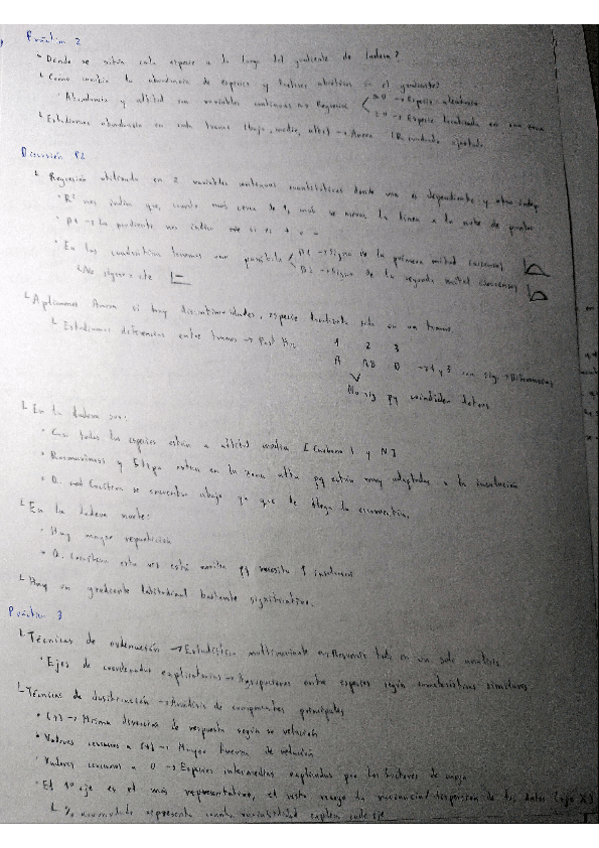 Práctica 2
Donde se sitúa cada especie a lo largo del gradiente de ladera?
Como cambia la abundancia de especies y factores abióticos en el gradiente?
Abundancia y altitud son variables continuas → Regresión → Especie aleatoria
→ Especie localizada en una zona
Estudiamos abundancia en cada tramo (bajo, medio, alto) → Anova (R cuadrado ajustado
Discusión P2
Regresión utilizada en 2 variables continuas cuantitativas donde una es dependiente y otra indep
R² nos indica que, cuanto más cerca de 1, más se acerca la línea a la nube de puntos
β1 → La pendiente nos indica si es + o -
En las cuadrática tenemos una parábola β1 → Signo de la primera mitad
β2 → Signo de la segunda mitad
No sig
Aplicamos Anova si hay discontinuidades, especie localizada solo en un tramo.
Estudiamos diferencias entre tramos → Post Hoc
1 2 3
A AB B → 1 y 3 son sig. → Diferencias
No sig pq coinciden letras
En la ladera sur:
Casi todas las especies están a altitud media
Rosmarinus y Stipa están en la zona alta pq están muy adaptadas a la insolación
Q. coccifera se encuentra abajo ya que
En la ladera norte:
Hay mayor repartición
Q. coccifera esta vez está arriba pq necesita ↑ insolación
Hay un gradiente latitudinal bastante significativo.
Práctica 3
Técnicas de ordenación → Estadística multivariante → Resumir todo en un solo análisis
Ejes de coordenadas explicatorias → Agrupaciones entre especies según características similares
Técnicas de → Análisis de componentes principales
(+) → Misma de respuesta según su relación
Valores cercanos a (+) → Mayor fuerza de relación
Valores cercanos a 0 → Especies intermedias explicadas por los factores
El 1º eje es el más representativo, el resto recoge la variancia/dispersión de los datos (eje X)
% acumulado representa cuanta variabilidad explica cada eje